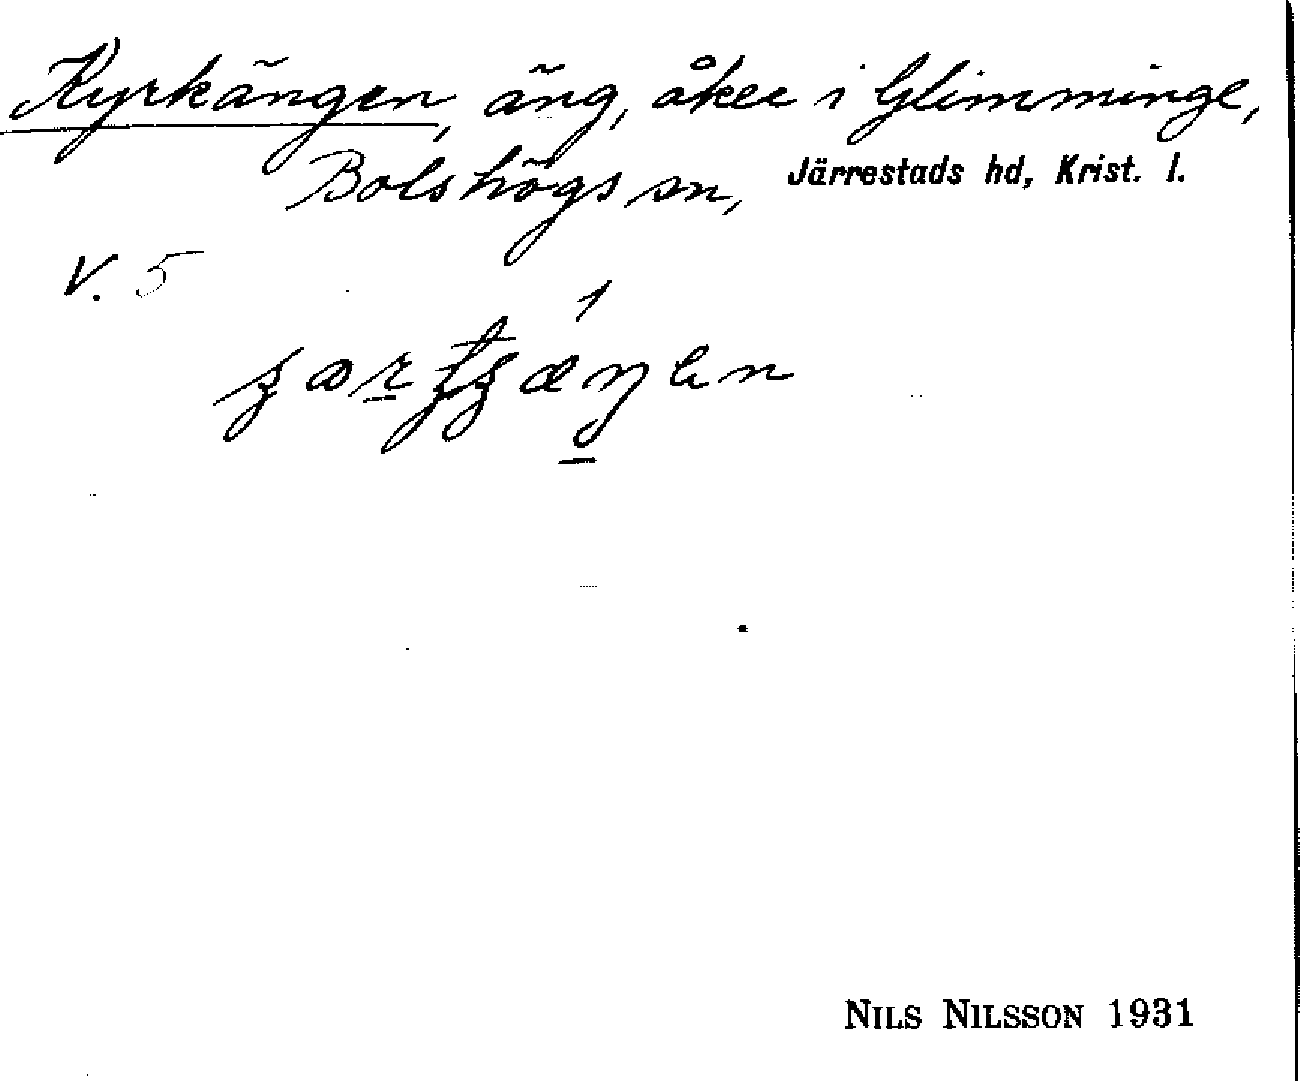 Kyrkängen, äng, åker i Glimminge,
Bolshögs sn, Järrestads hd, Krist. l.
V. 5
NILS NILSSON 1931